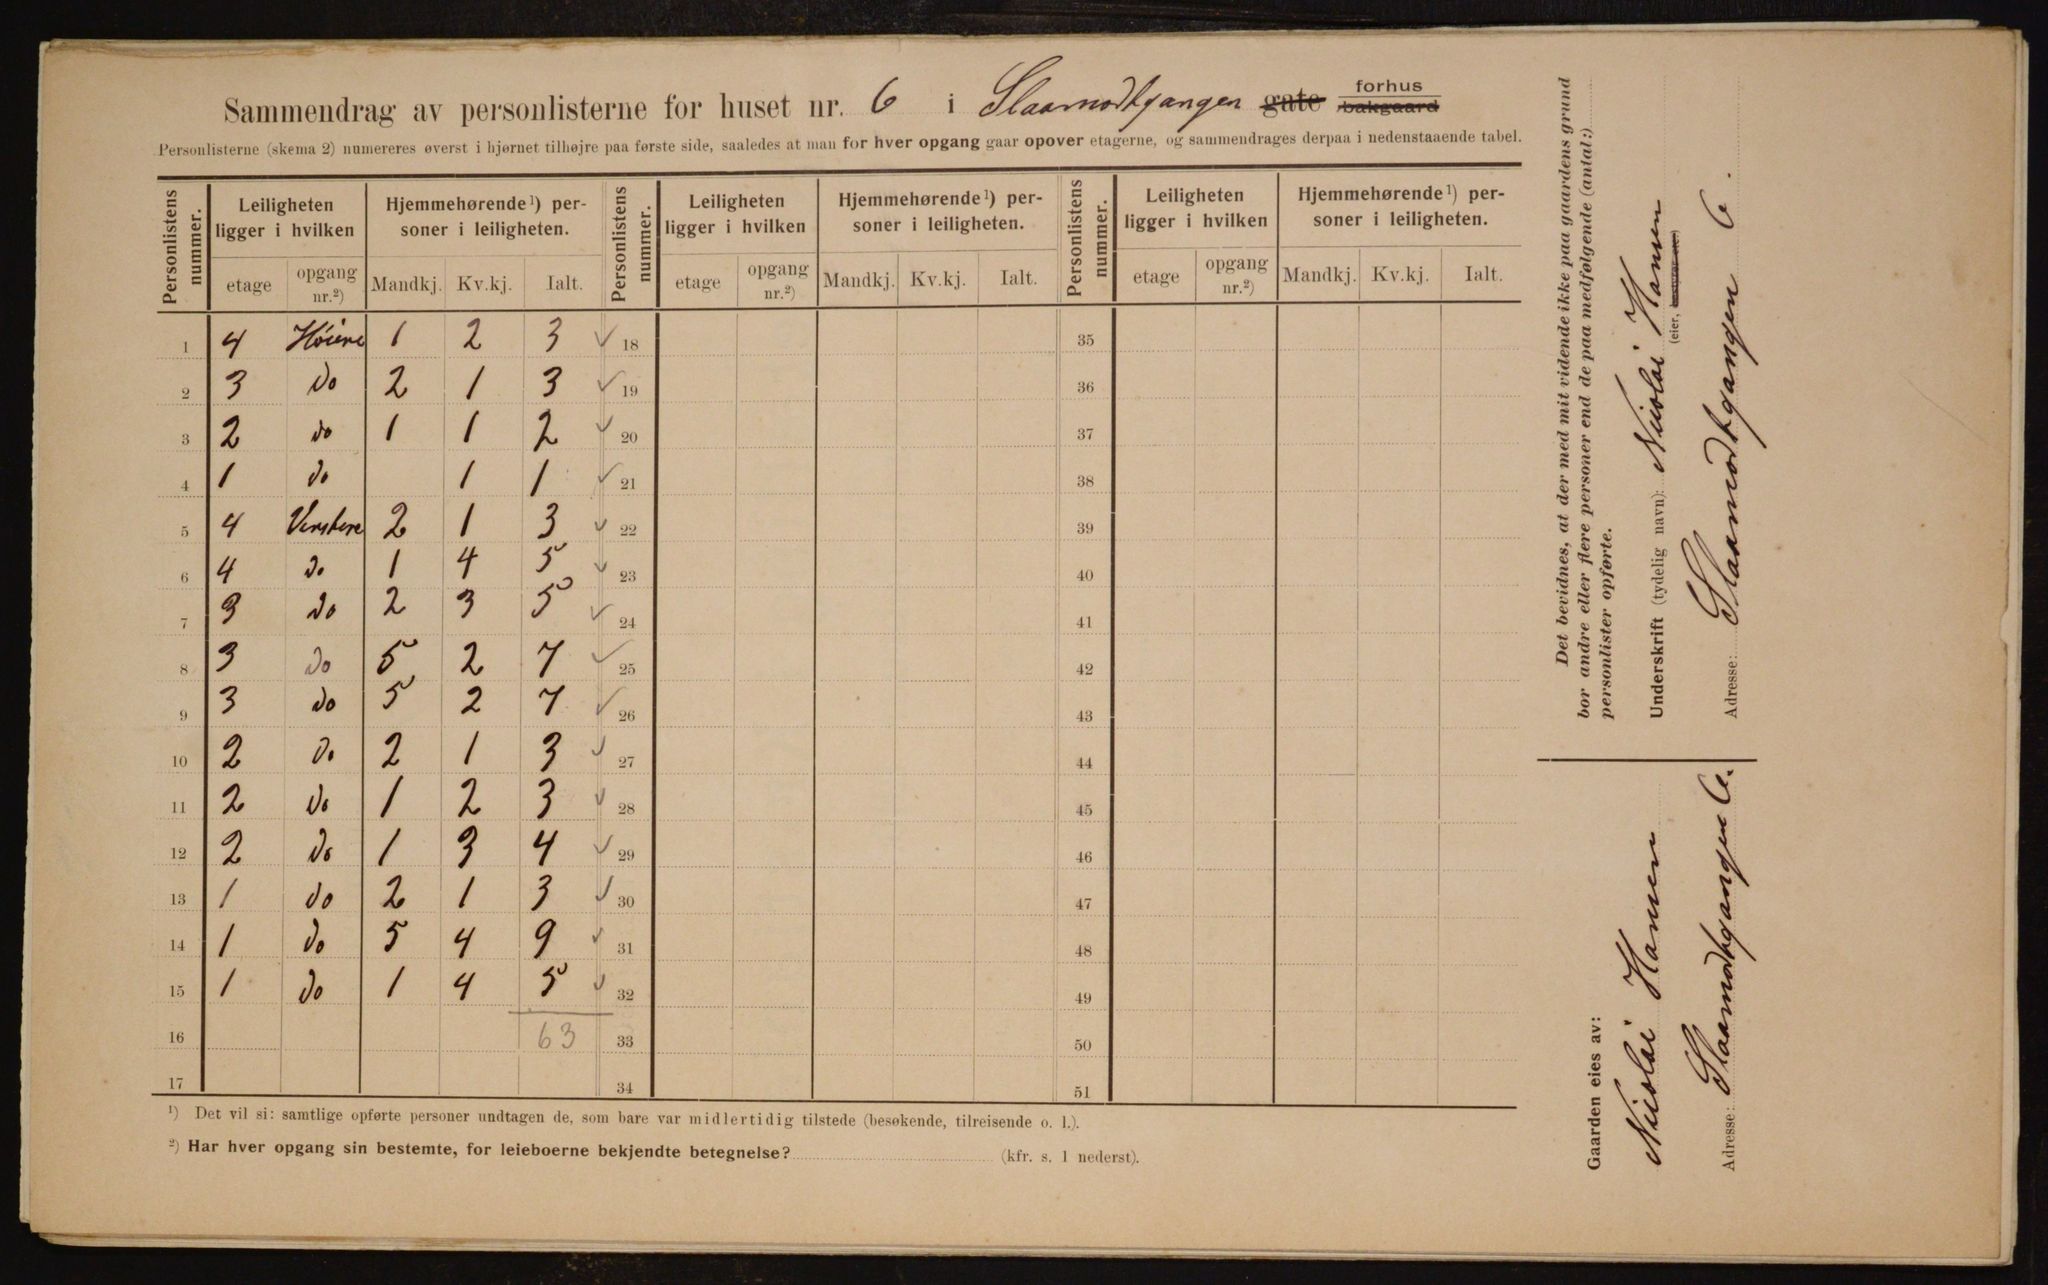 Sammendrag av personlisterne for huset nr. 6 i Slaamodtgangen gate forhus bakgaard
Personlisterne (skema 2) numereres øverst i hjørnet tilhøjre paa første side, saaledes at man for hver opgang gaar opover etagerne, og sammendrages derpaa i nedenstaaende tabel.
Personlistens nummer. Leiligheten ligger i hvilken Hjemmehørende¹) personer i leiligheten. Personlistens nummer. Leiligheten ligger i hvilken Hjemmehørende¹) personer i leiligheten. Personlistens nummer. Leiligheten ligger i hvilken Hjemmehørende¹) personer i leiligheten.
etage opgang nr.²) Mandkj. Kv.kj. Ialt. etage opgang nr.²) Mandkj. Kv.kj. Ialt. etage opgang nr.²) Mandkj. Kv.kj. Ialt.
1 4 Höiere 1 2 3 ✓ 18 35
2 3 do 2 1 3 ✓ 19 36
3 2 do 1 1 2 ✓ 20 37
4 1 do 1 1 ✓ 21 38
5 4 Venstere 2 1 3 ✓ 22 39
6 4 do 1 4 5 ✓ 23 40
7 3 do 2 3 5 ✓ 24 41
8 3 do 5 2 7 ✓ 25 42
9 3 do 5 2 7 ✓ 26 43
10 2 do 2 1 3 ✓ 27 44
11 2 do 1 2 3 ✓ 28 45
12 2 do 1 3 4 ✓ 29 46
13 1 do 2 1 3 ✓ 30 47
14 1 do 5 4 9 ✓ 31 48
15 1 do 1 4 5 ✓ 32 49
16 63 33 50
17 34 51
¹) Det vil si: samtlige opførte personer undtagen de, som bare var midlertidig tilstede (besøkende, tilreisende o. l.).
²) Har hver opgang sin bestemte, for leieboerne bekjendte betegnelse? (kfr. s. 1 nederst).
Det bevidnes, at der med mit vidende ikke paa gaardens grund
bor andre eller flere personer end de paa medfølgende (antal:)
personlister opførte.
Underskrift (tydelig navn): Nicolai Hansen
(eier, bestyrer etc.)
Adresse: Slaamodtgangen 6.
Gaarden eies av:
Nicolai Hansen
Adresse: Slaamodtgangen 6.